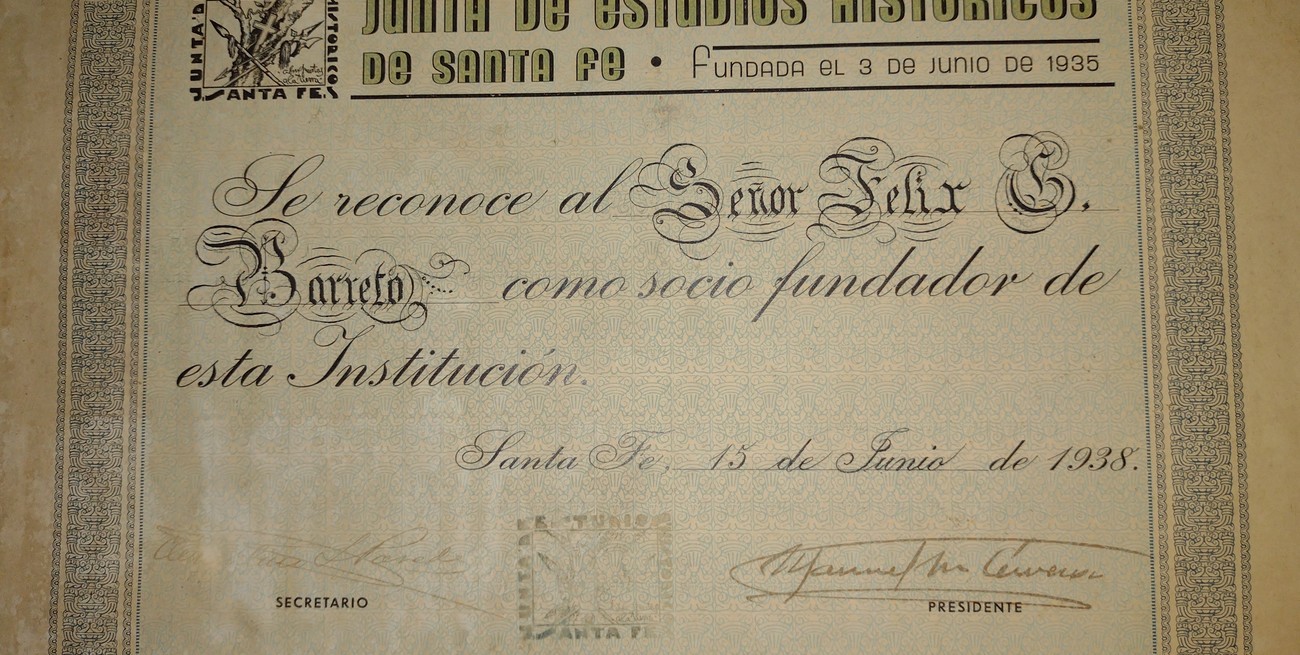 JUNTA DE ESTUDIOS HISTORICOS
DE SANTA FE • FUNDADA EL 3 DE JUNIO DE 1935
JUNTA D
HISTORICOS
SANTA FE
Se reconoce al Señor Felix G.
Barreto como socio fundador de
esta Institución.
Santa Fe, 15 de Junio de 1938.
JUNTA DE ESTUDIOS
SANTA FE
Manuel M. Cervera
SECRETARIO
PRESIDENTE